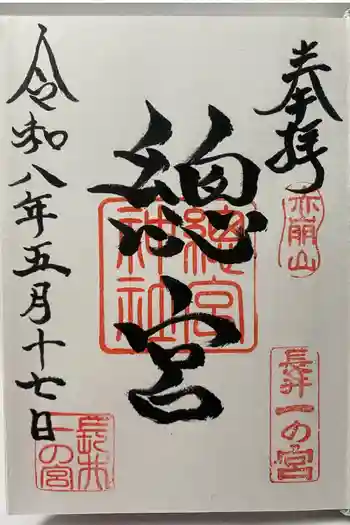 奉拝
赤崩山
長井一の宮
總宮
總宮神社
令和八年五月十七日
長井一の宮